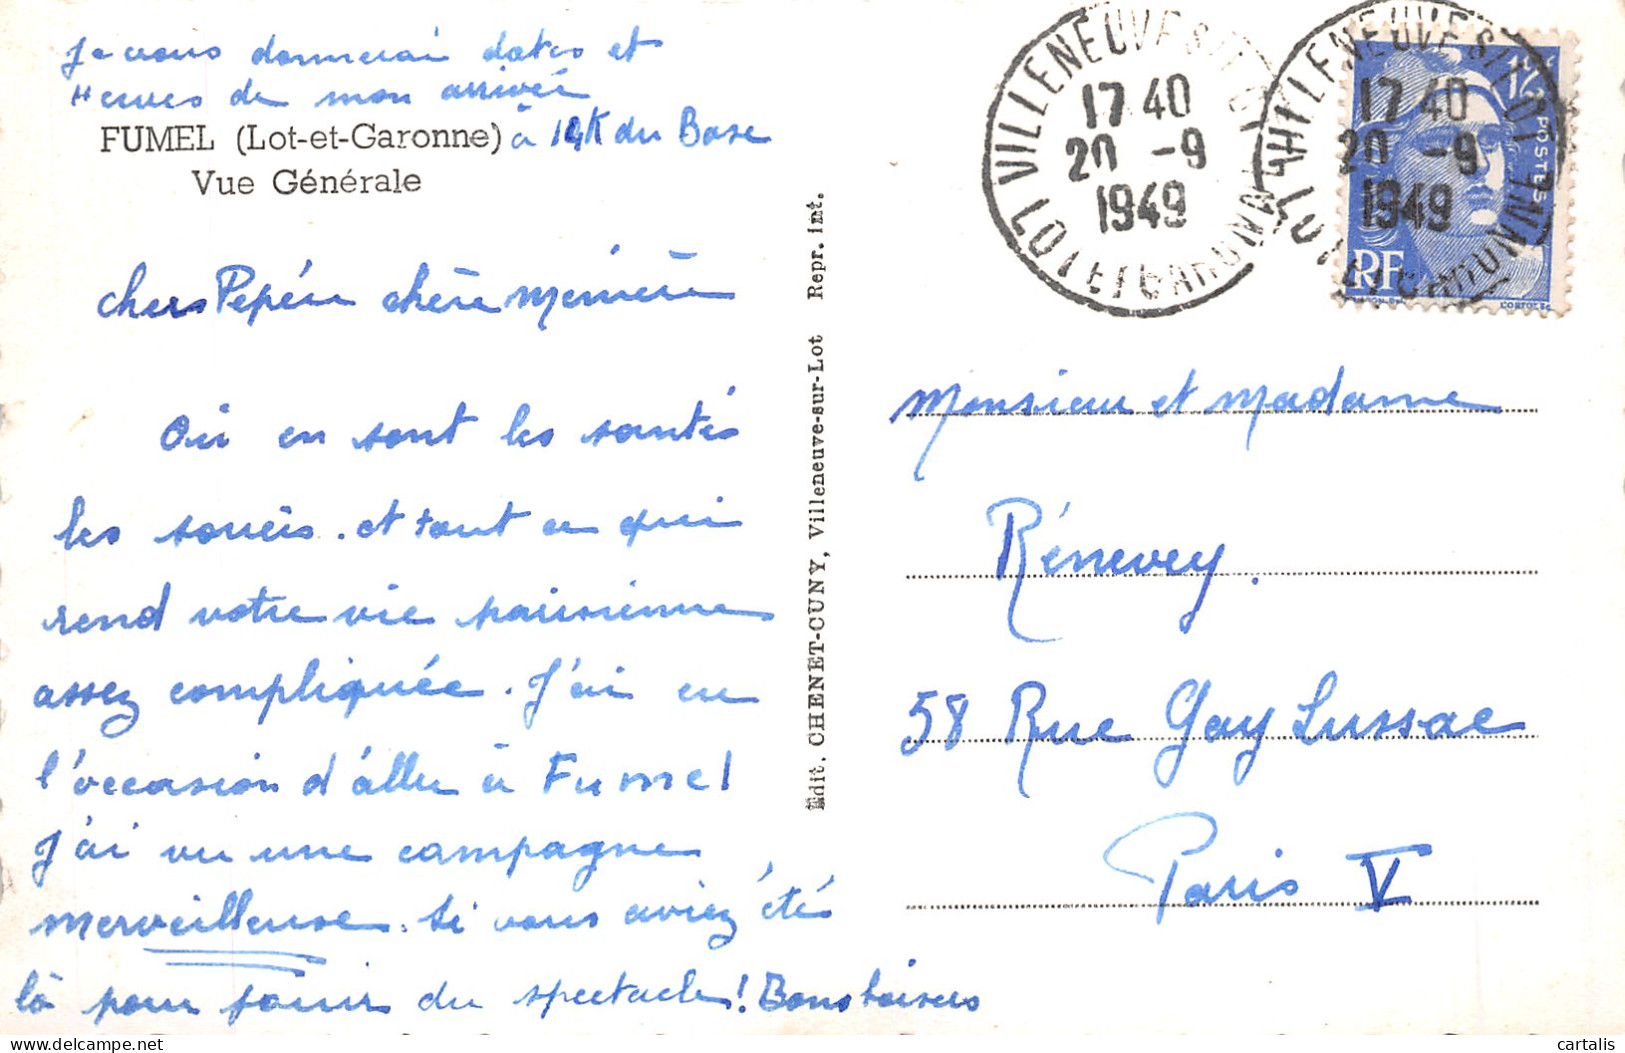 Je vous donnerai dates et
Heures de mon arrivée
FUMEL (Lot-et-Garonne) à 14K du Base
Vue Générale
chers Pepére chère Mémère
Où en sont les santés
les soucis. et tout ce qui
rend votre vie parisienne
assez compliquée. J'ai eu
l'occasion d'aller à Fumel
J'ai vu une campagne
merveilleuse. Si vous aviez étés
là pour jouir du spectacle! Bons baisers
Edit. CHENET-CUNY, Villeneuve-sur-Lot Repr. int.
VILLENEUVE S/LOT
17 40
20 -9
1949
LOT ET GARONNE
VILLENEUVE S/LOT
17 40
20 -9
1949
LOT ET GARONNE
12F
POSTES
RF
Monsieur et Madame
Rénevey.
58 Rue Gay Lussac
Paris V
cartalis